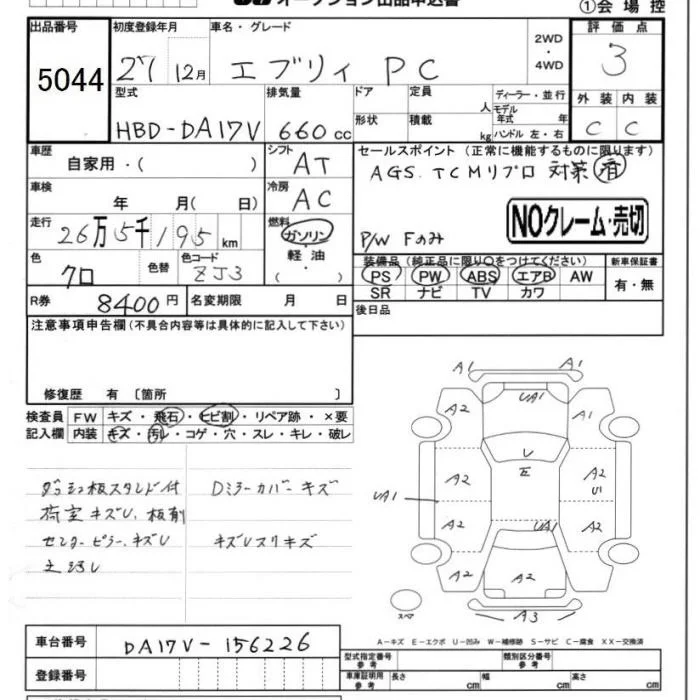 オークション出品申込書
①会場控
出品番号 初度登録年月 車名・グレード 評価点
5044 27 12月 エブリィ PC 2WD・4WD 3
型式 排気量 ドア 定員 人 ディーラー・並行 外装 内装
HBD-DA17V 660cc 形状 積載 kg モデル年式 年 ハンドル 左・右 C C
車歴 シフト セールスポイント (正常に機能するものに限ります)
自家用・( ) AT AGS. TCMリプロ 対策 済
車検 年 月( 日) 冷房 AC
NOクレーム・売切
走行 26万5千195km 燃料 ガソリン・軽油・( P/W Fのみ
色 クロ 色替 色コード ZJ3
装備品 (純正品に限り○をつけてください) 新車保証書
PS PW ABS エアB AW 有・無
SR ナビ TV カワ
R券 8400円 名変期限 月 日 後日品
注意事項申告欄(不具合内容等は具体的に記入して下さい)
修復歴 有 〔箇所 〕
検査員 FW キズ・飛石・ヒビ割・リペア跡・×要
記入欄 内装 キズ・汚レ・コゲ・穴・スレ・キレ・破レ
ダッシュ板スタンド付 Dミラーカバーキズ
荷室キズU、板削
センターピラー、キズU キズUスリキズ
土汚レ
A1 A1
A2 UA1 A1
レ
A2 A2 U1
UA1
A2 UA1 A2
A2 A2 A2
スペア A3
A-キズ E-エクボ U-凹み W-補修跡 S-サビ C-腐食 XX-交換済
車台番号 DA17V-156226
登録番号
型式指定番号 参考 類別区分番号 参考
車庫証明用 参考 長さ cm 幅 cm 高さ cm